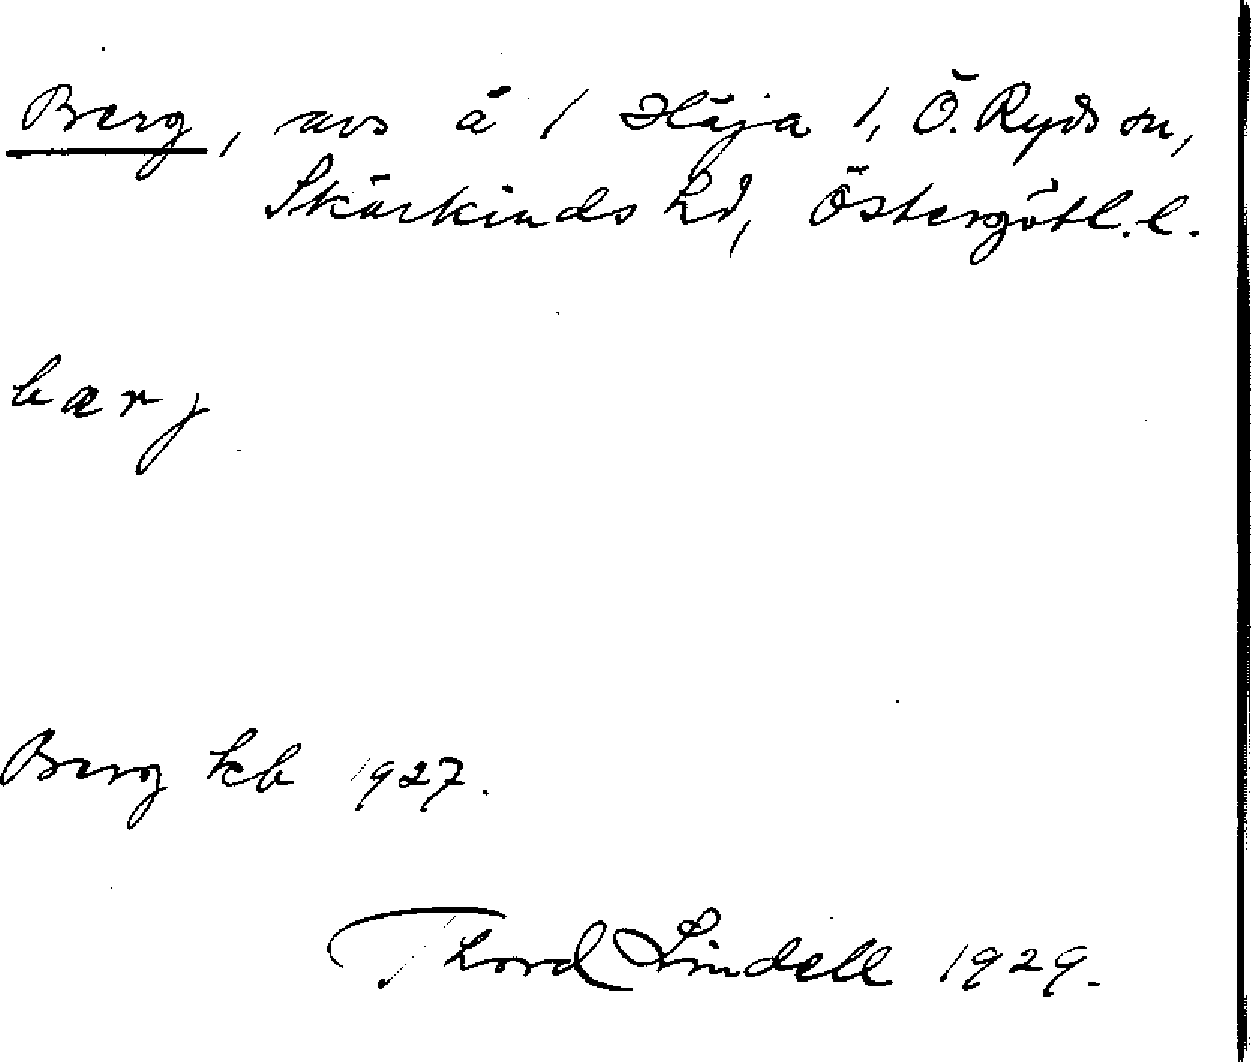 Berg, avs å 1 Häja 1, Ö. Ryds sn,
Skärkinds hd, Östergötl. l.
bærj
Berg kb 1927.
Thord Lindell 1929.